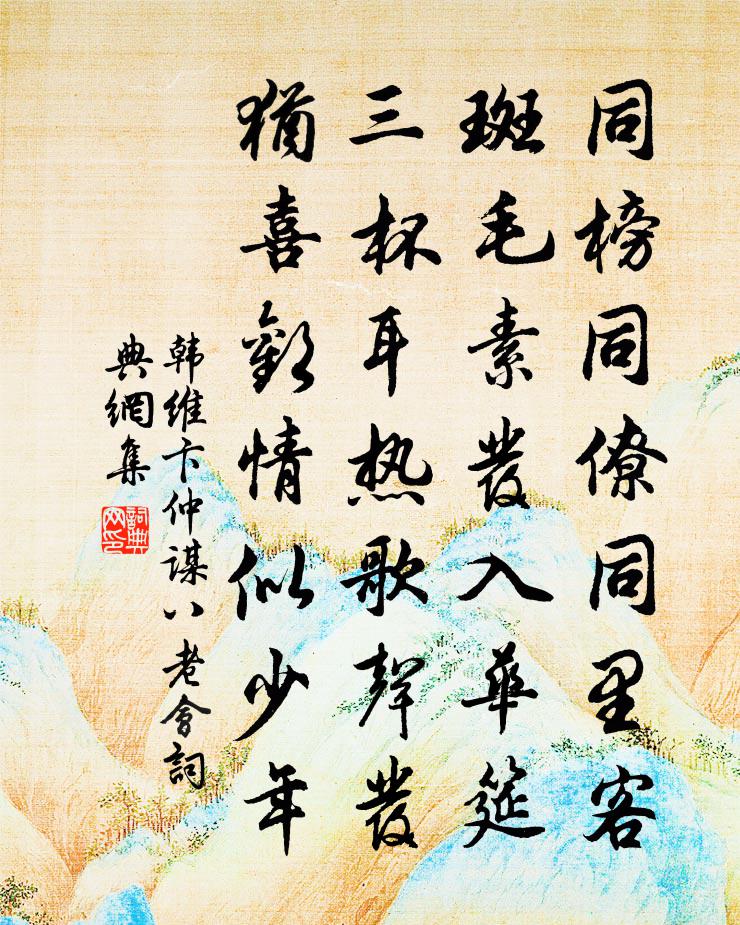 同榜同僚同里客
斑毛素发入华筵
三杯耳热歌声发
犹喜欢情似少年
韩维卞仲谋八老会词
典网集
词典
网印